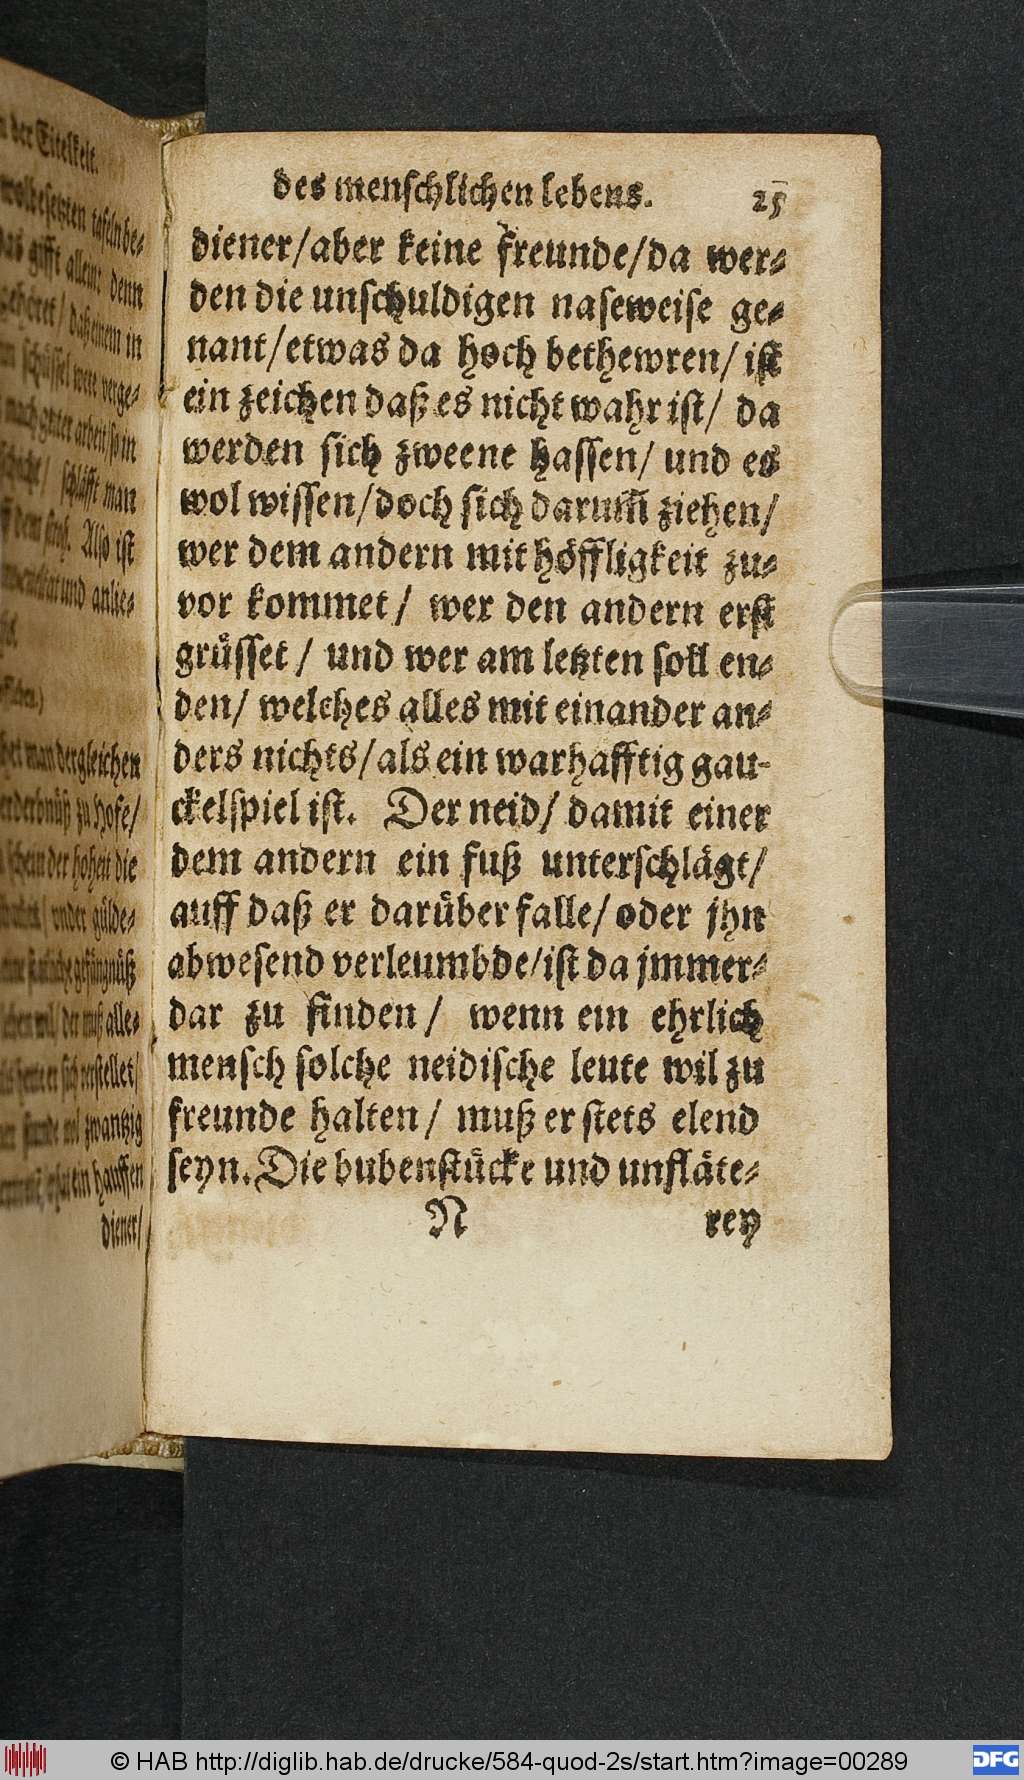 n der Eitelkeit.
wolbesetzten tafeln be-
das gifft allein: denn
gehöret / daß einem in
schüssel were verge-
nach guter arbeit / so in
schläfft man
Also ist
und anlie-
het man dergleichen
verderbnüß zu Hofe /
schein der hoheit die
vnder gülde-
gefängnüß
der muß alle-
er sich verstellet /
wol zwantzig
ein hauffen
diener /
des menschlichen lebens. 25
diener / aber keine freunde / da wer-
den die unschuldigen naseweise ge-
nant / etwas da hoch bethewren / ist
ein zeichen daß es nicht wahr ist / da
werden sich zweene hassen / und es
wol wissen / doch sich darum̃ ziehen /
wer dem andern mit höffligkeit zu-
vor kommet / wer den andern erst
grüsset / und wer am letzten soll en-
den / welches alles mit einander an-
ders nichts / als ein warhafftig gau-
ckelspiel ist. Der neid / damit einer
dem andern ein fuß unterschlägt /
auff daß er darüber falle / oder jhn
abwesend verleumbde / ist da jmmer-
dar zu finden / wenn ein ehrlich
mensch solche neidische leute wil zu
freunde halten / muß er stets elend
seyn. Die bubenstücke und unfläte-
N rey
© HAB http://diglib.hab.de/drucke/584-quod-2s/start.htm?image=00289
DFG